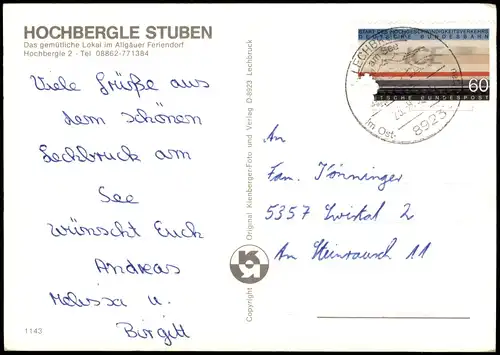 HOCHBERGLE STUBEN
Das gemütliche Lokal im Allgäuer Feriendorf
Hochbergle 2 - Tel 08862-771384
Viele Grüße aus
dem schönen
Lechbruck am
See
wünscht Euch
Andreas
Melissa u.
Birgitt
1143
Copyright
Original Kienberger-Foto und Verlag D-8923 Lechbruck
LECHBR
am See
im Ost-
8923
DEUTSCHE BUNDESBAHN
ICE
DEUTSCHE BUNDESPOST
60
An
Fam. Könninger
5357 Swistal 2
Am Steinrausch 11